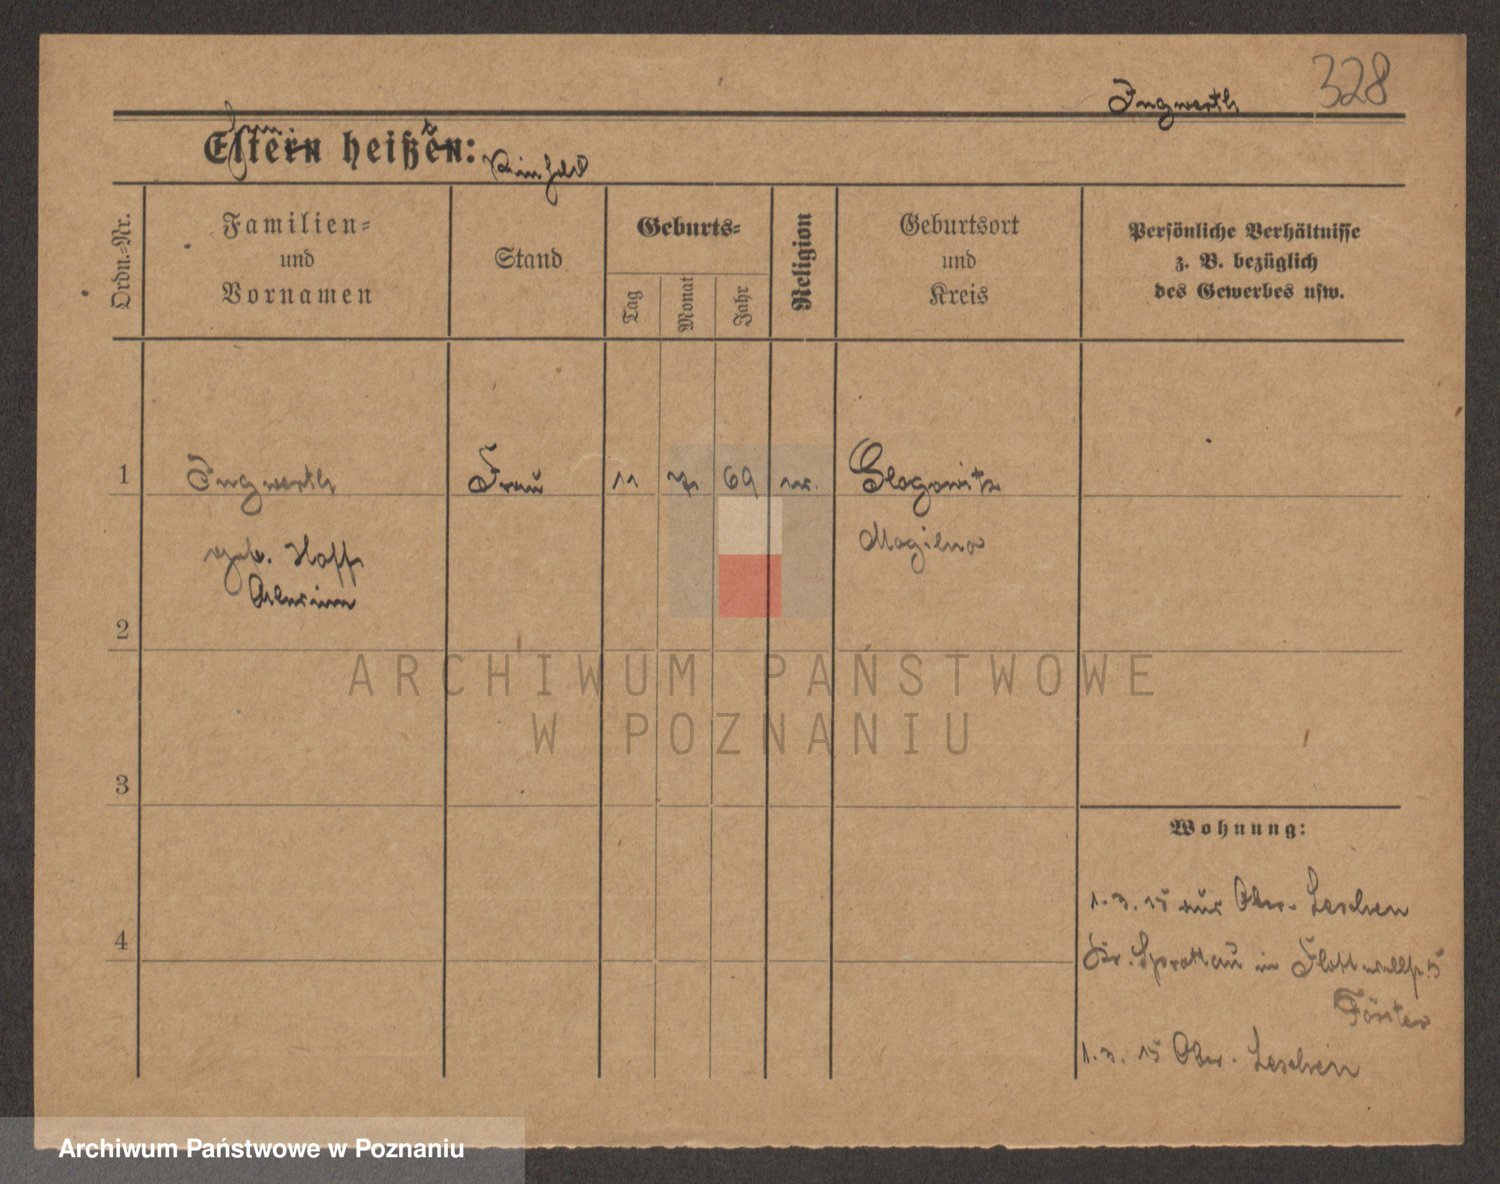 328
Ingwerth
Eltern heißen:
Reinhold
Ordn.-Nr.
Familien-
und
Vornamen
Stand
Geburts-
Tag
Monat
Jahr
Religion
Geburtsort
und
Kreis
Persönliche Verhältnisse
z. B. bezüglich
des Gewerbes usw.
1 Ingwerth Frau 11 7 69
geb. Hoff
Mogilno
2
ARCHIWUM PAŃSTWOWE
W POZNANIU
3
Wohnung:
1. 3. 15 aus Ober-Leschen
4
Kr. Sprottau in Flottwellstr. 5
Förster
1. 3. 15 Ober-Leschen
Archiwum Państwowe w Poznaniu